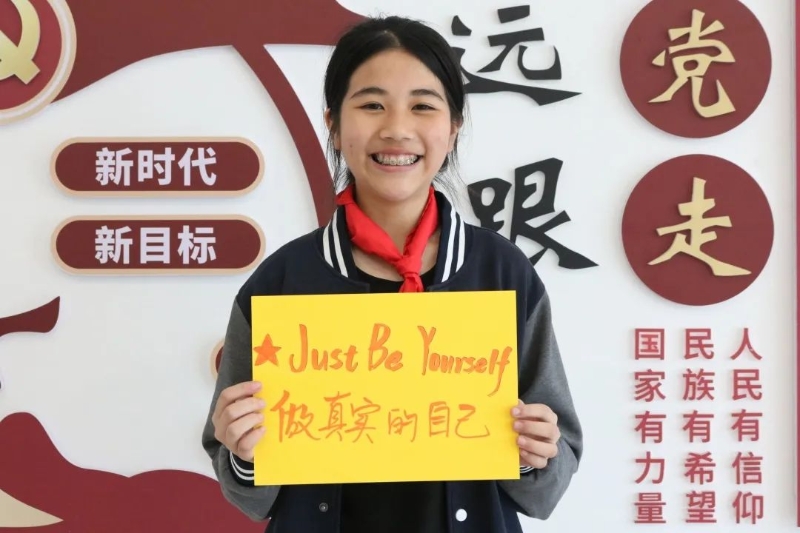 新时代
新目标
远
跟
党
走
人民有信仰
民族有希望
国家有力量
★ Just Be Yourself
做真实的自己